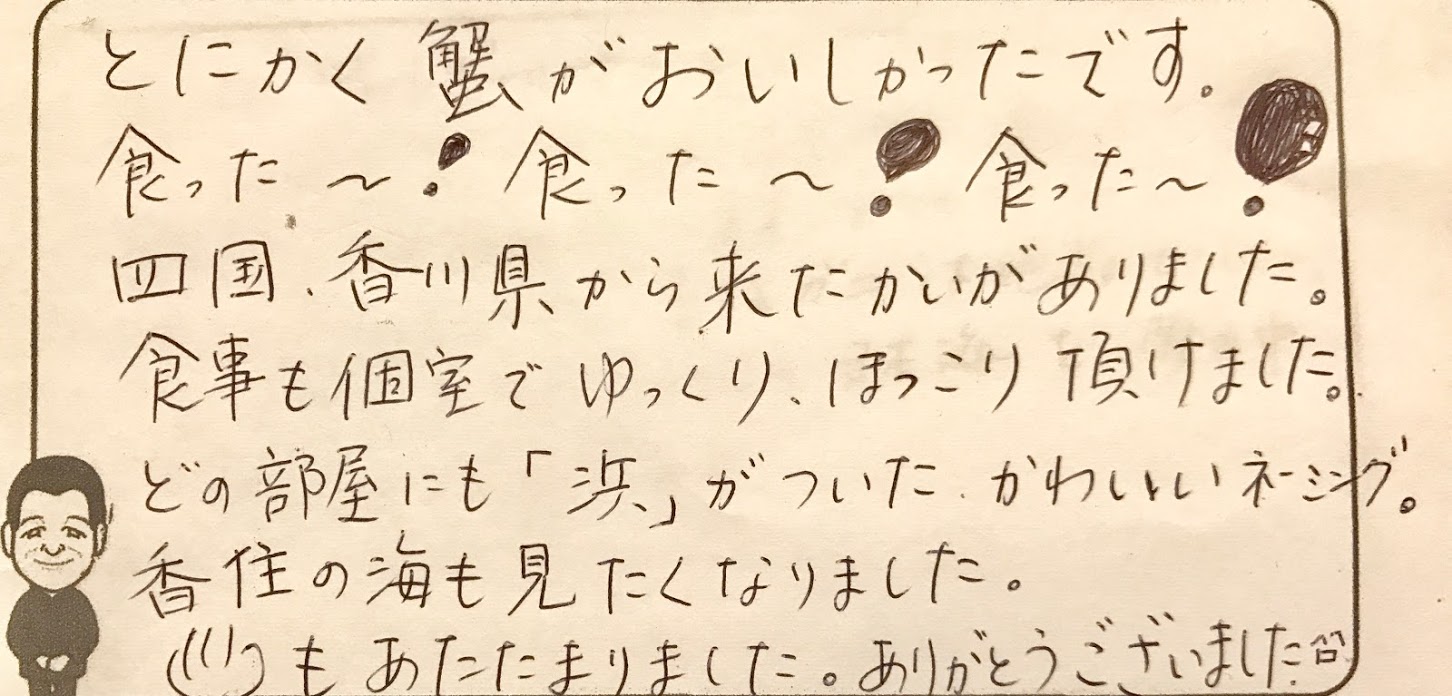 とにかく蟹がおいしかったです。
食った〜! 食った〜! 食った〜!
四国、香川県から来たかいがありました。
食事も個室でゆっくり、ほっこり頂けました。
どの部屋にも「浜」がついた、かわいいネーミング。
香住の海も見たくなりました。
もあたたまりました。ありがとうございました